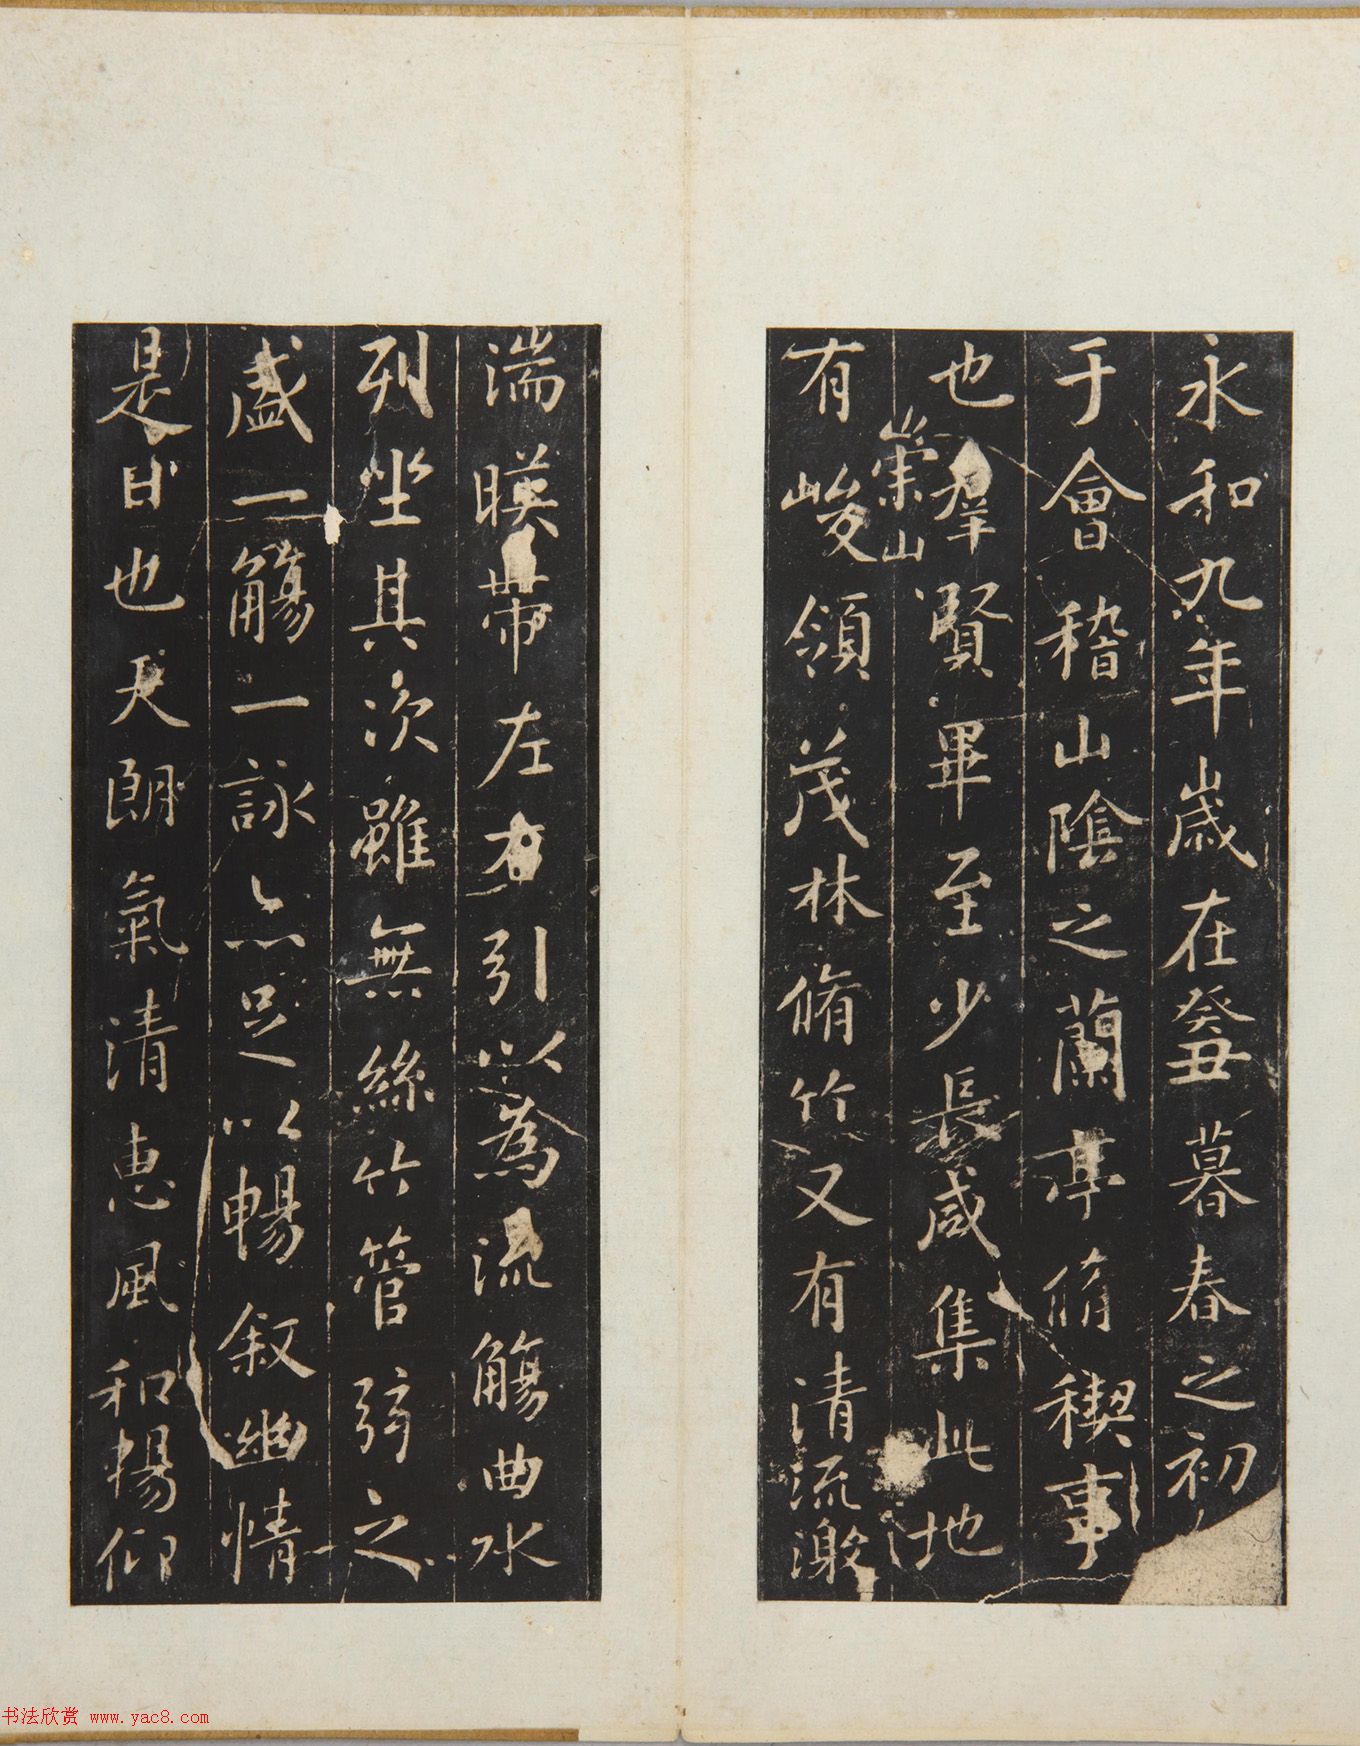 永和九年歲在癸丑暮春之初
于會稽山陰之蘭亭脩稧事
也羣賢畢至少長咸集此地
崇山
有峻領茂林脩竹又有清流激
湍暎帶左右引以為流觴曲水
列坐其次雖無絲竹管弦之
盛一觴一詠亦足以暢敘幽情
是日也天朗氣清惠風和暢仰
书法欣赏 www.yac8.com